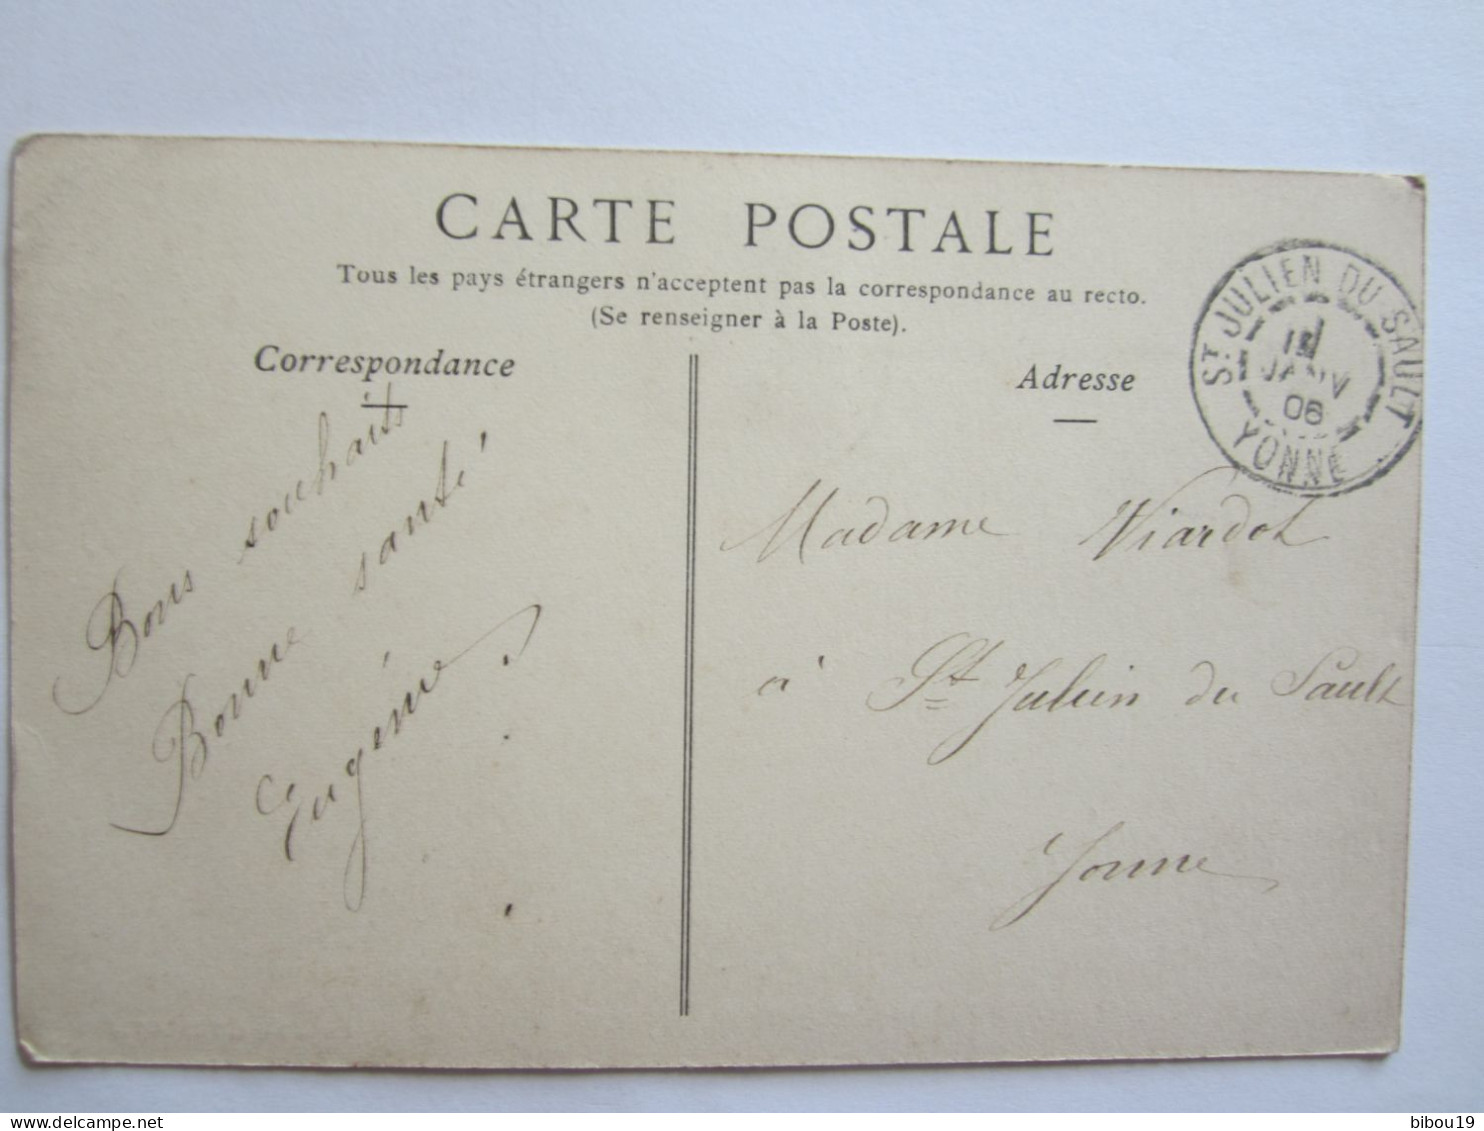 CARTE POSTALE
Tous les pays étrangers n'acceptent pas la correspondance au recto.
(Se renseigner à la Poste).
Correspondance
Bons souhaits
Bonne santé!
Eugénie
Adresse
Madame Viardot
à St Julien du Sault
Yonne
ST JULIEN DU SAULT
JANV
06
YONNE
bibou19